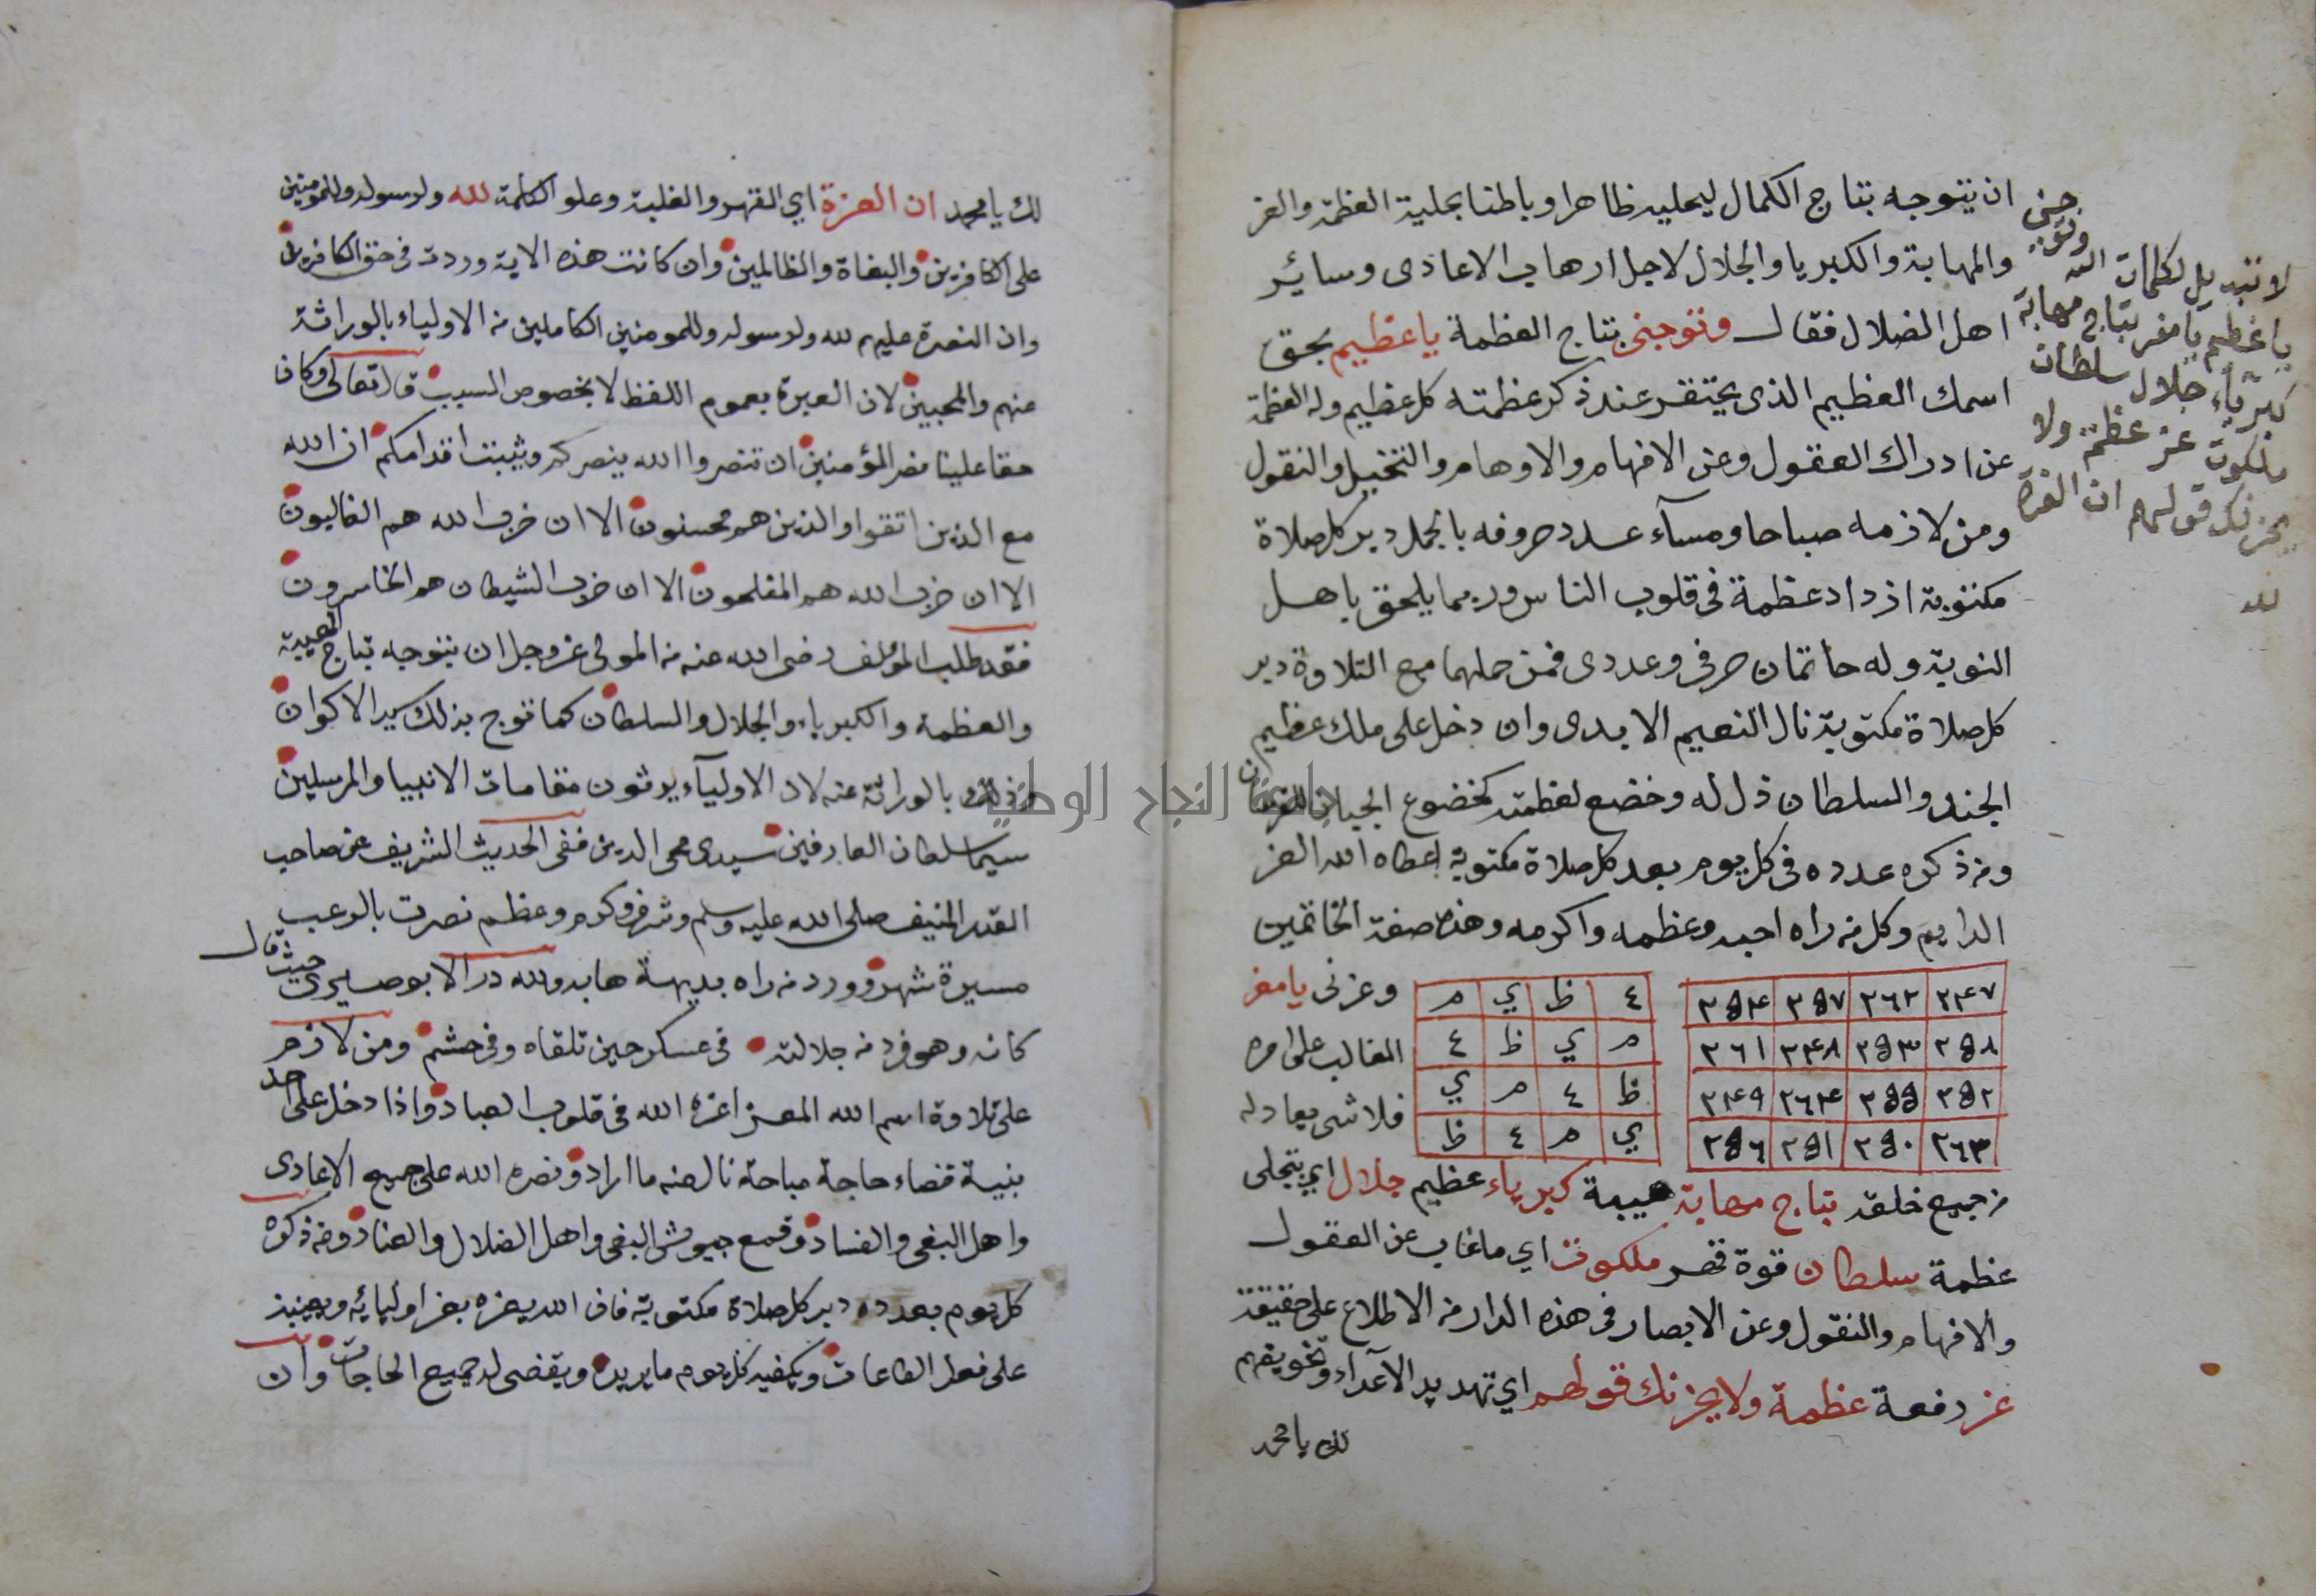 ان يتوجه بتاج الكمال ليحليه ظاهرا وباطنا بحلية العظمة والعز
والمهابة والكبريا والجلال لاجل ارهاب الاعادى وسائر
اهل الضلال فقال وتوجنى بتاج العظمة ياعظيم بحق
اسمك العظيم الذى يحتقر عند ذكر عظمته كل عظيم وله العظمة
عن ادراك العقول وعن الافهام والاوهام والتخييل والنقول
ومن لازمه صباحا ومسآء عدد حروفه بالجمل دبر كل صلاة
مكتوبة ازداد عظمة فى قلوب الناس وربما يلحق باهل
النوبة وله خاتمان حرفى وعددى فمن حملهما مع التلاوة دبر
كل صلاة مكتوبة نال النعيم الابدى وان دخل على ملك عظيم
الجند والسلطان ذل له وخضع لعظمته كخضوع الجبان
ومن ذكره عدده فى كل يوم بعد كل صلاة مكتوبة اعطاه الله العز
الدايم وكل من راه احبه وعظمه واكرمه وهذه صفة الخاتمين
٢٤٧ ٢٦٢ ٢٥٧ ٢٥٤
٢٥٨ ٢٥٣ ٢٤٨ ٢٦١
٢٥٢ ٢٥٥ ٢٦٤ ٢٤٩
٢٦٣ ٢٥٠ ٢٥١ ٢٥٦
ع ظ ي م
م ي ظ ع
ظ ع م ي
ي م ع ظ
وعزنى يامعز
الغالب على امره
فلا شى يعادله
من جميع خلقه بتاج مهابة هيبة كبرياء عظيم جلال اي يتجلى
عظمة سلطان قوة قهر ملكوت اي ماغاب عن العقول
والافهام والنقول وعن الابصار فى هذه الدار من الاطلاع على حقيقة
عز رفعة عظمة ولايحزنك قولهم اي تهديد الآعداء وتخويفهم
لك يامحمد
وتوجنى
لا تبديل لكلمات الله
يا عظيم يا معز بتاج مهابة
كبرياء جلال سلطان
ملكوت عز عظمة ولا
يحزنك قولهم ان العزة
لله
لك يامحمد ان العزة اي القهر والغلبة وعلو الكلمة لله ولرسوله وللمومنين
على الكافرين والبغاة والظالمين وان كانت هذه الاية وردت فى حق الكافرين
وان النصرة عليهم لله ولرسوله وللمومنين الكاملين من الاولياء بالوراثة
منهم والمحبين لان العبرة بعموم اللفظ لا بخصوص السبب قال تعالى وكان
حقا علينا نصر المؤمنين ان تنصروا الله ينصركم ويثبت اقدامكم ان الله
مع الذين اتقوا والذين هم محسنون الا ان حزب الله هم الغالبون
الا ان حزب الله هم المفلحون الا ان حزب الشيطان هم الخاسرون
فقد طلب المؤلف رضى الله عنه من المولى عز وجل ان يتوجه بتاج الهيبة
والعظمة والكبرياء والجلال والسلطان كما توج بذلك سيد الاكوان
بالوراثة عنه لان الاوليآء يرثون مقامات الانبيا والمرسلين
سيما سلطان العارفين سيدى محى الدين ففى الحديث الشريف عن صاحب
القدر المنيف صلى الله عليه وسلم وشرف وكرم وعظم نصرت بالرعب
مسيرة شهر وورد من راه بديهة هابه ولله در الابوصيرى حيث قال
كانه وهو فرد من جلالته فى عسكر حين تلقاه وفى حشم ومن لازم
على تلاوة اسم الله المعز اعزه الله فى قلوب العباد واذا دخل على احد
بنية قضاء حاجة مباحة نال منه ما اراد ونصره الله على جميع الاعادى
واهل البغى والفساد وقمع جيوش البغى واهل الضلال والعناد ومن ذكره
كل يوم بعدده دبر كل صلاة مكتوبة فان الله يعزه بعز اوليائه ويعينه
على فعل الطاعات ويكفيه كل يوم مايريده ويقضى له جميع الحاجات وان
جامعة النجاح الوطنية